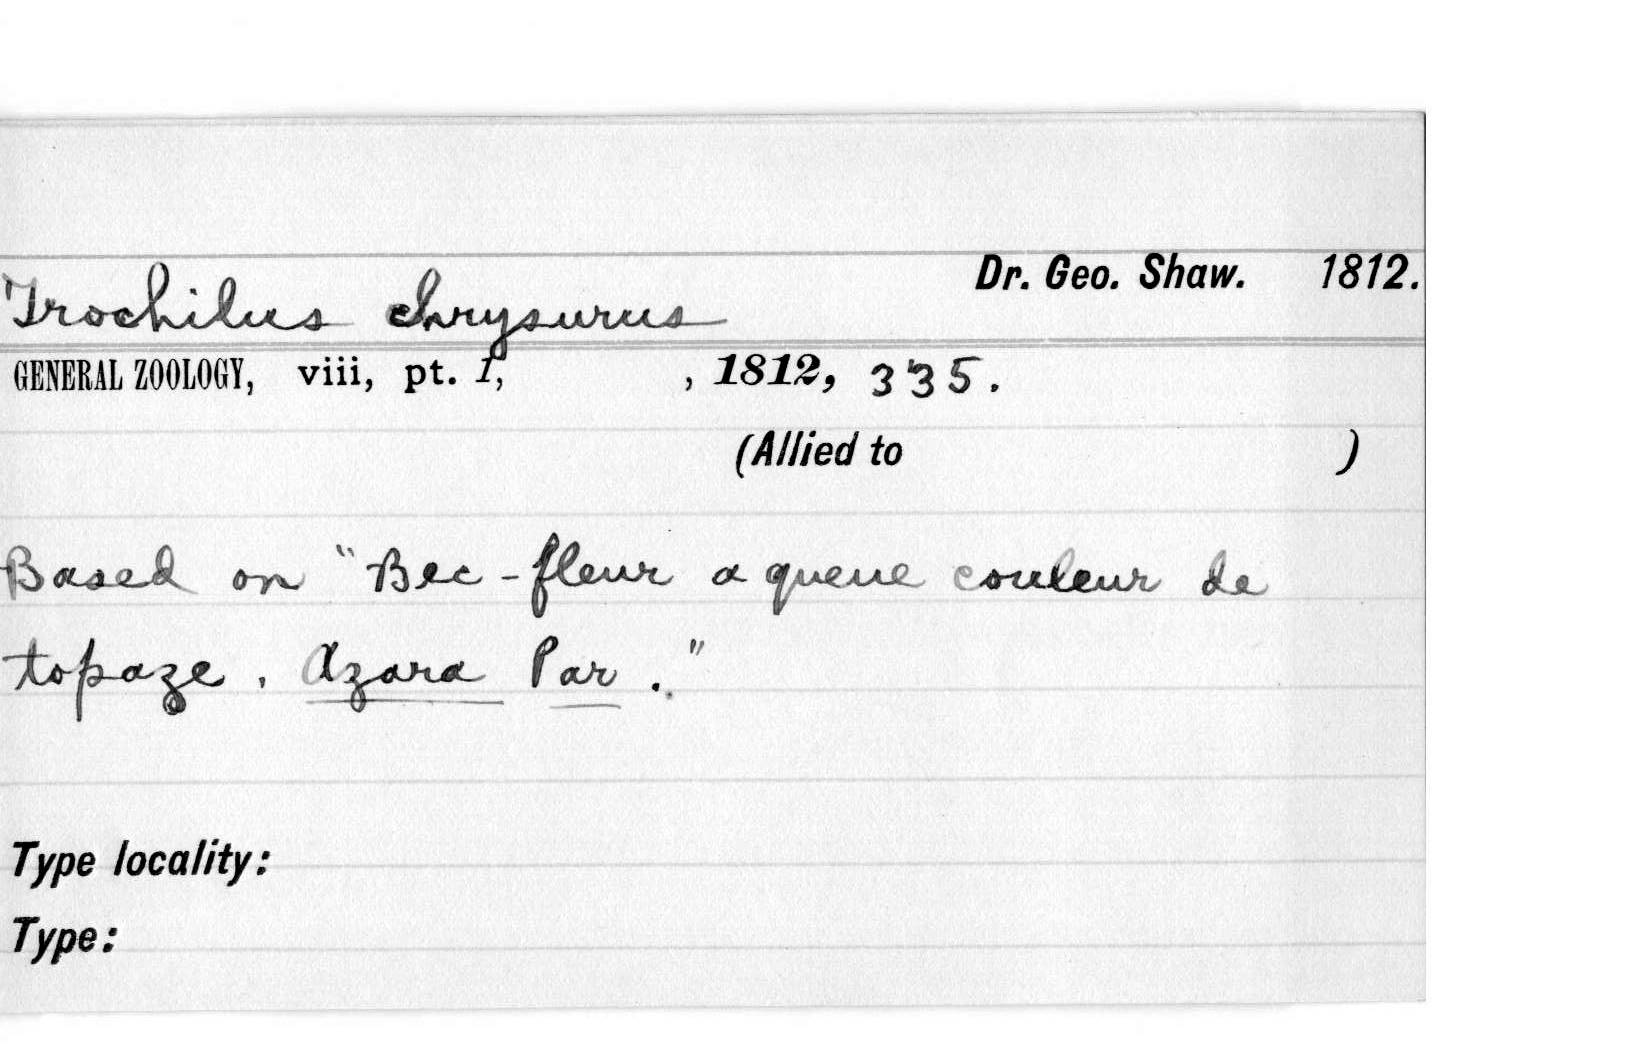 Dr. Geo. Shaw. 1812.
Trochilus chrysurus
GENERAL ZOOLOGY, viii, pt. 1, , 1812, 335.
(Allied to )
Based on "Bec-fleur a queue couleur de
topaze, Azara Par."
Type locality:
Type: